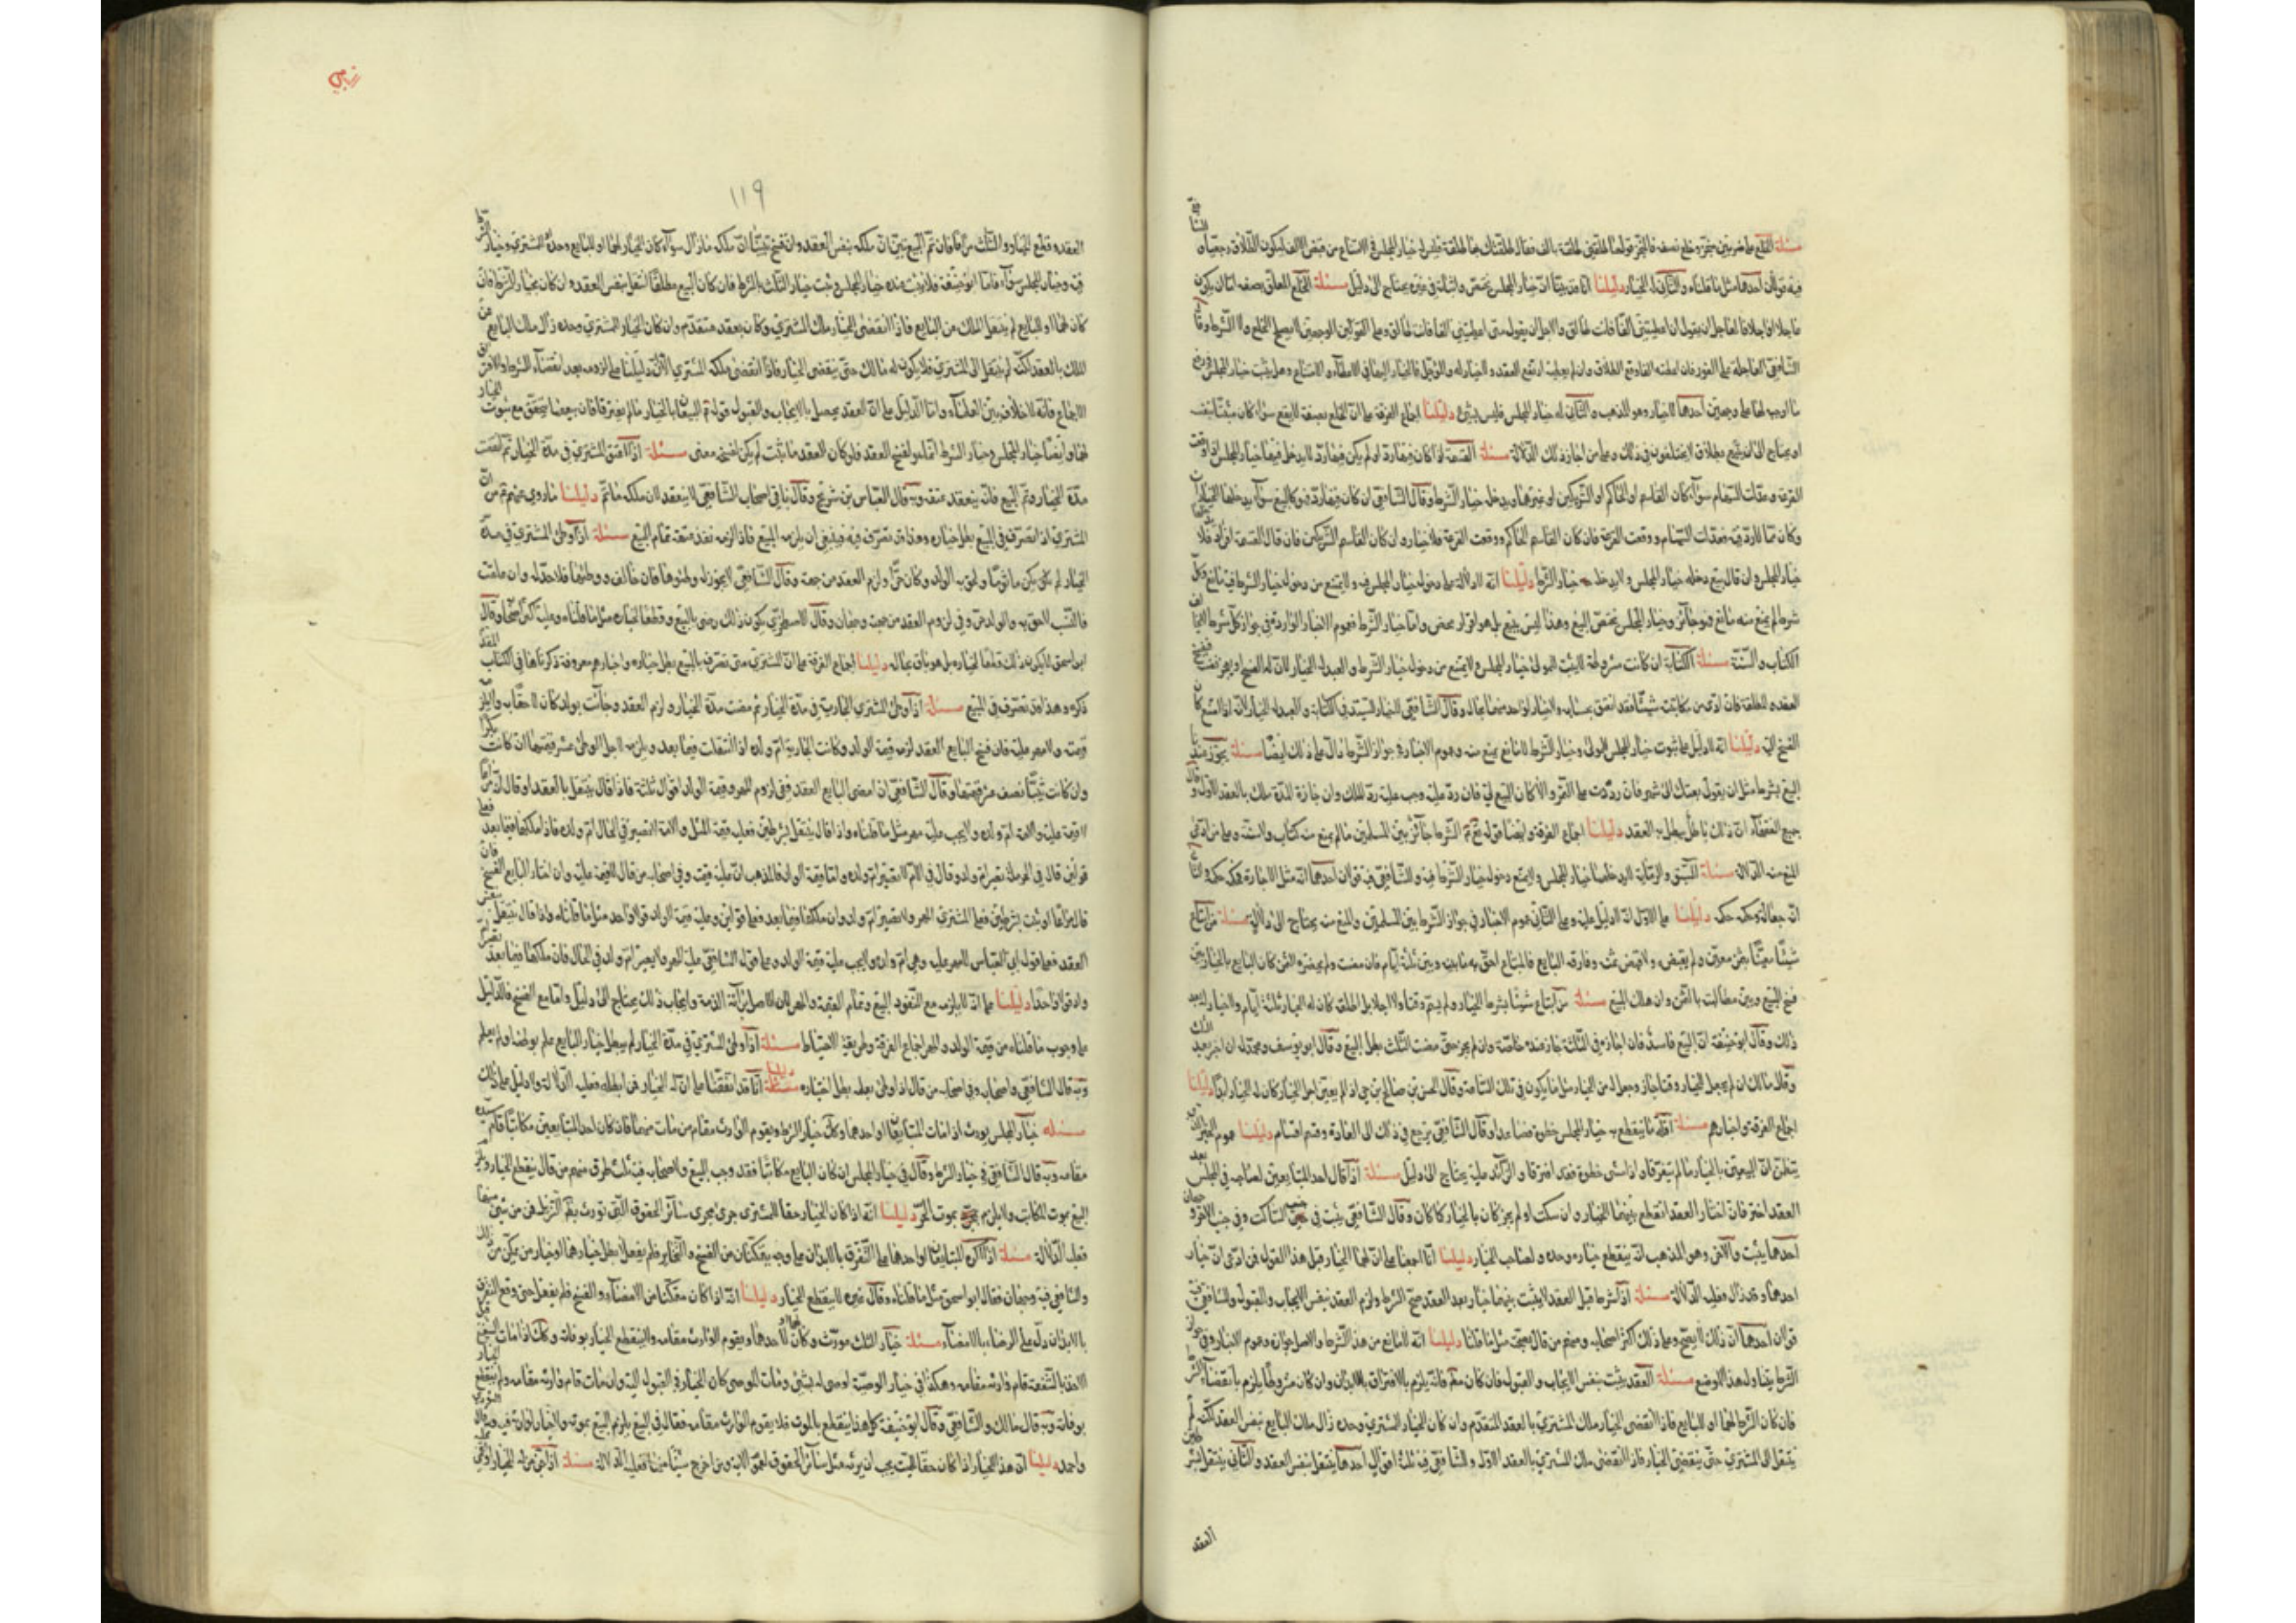 مسئلة الخلع على ضربين منجز وخلع بصفة فالمنجز قولها طلقني طلقة بالف فقال طلقتك بها طلقة فليس له خيار المجلس في الامتناع من قبض الالف ليكون الطلاق رجعيا و
فيه قولان احدهما مثل ما قلناه والثاني له الخيار دليلنا انا قد بينا ان خيار المجلس يختص البيع واثباته في غيره يحتاج الى دليل مسئلة الخلع المعلق بصفة اما ان يكون
عاجلا او اجلا فالعاجل ان يقول ان اعطيتني الفا فانت طالق والاجل ان يقول متى اعطيتني الفا فانت طالق وعلى القولين الوجهين لا يصح الخلع ولا الشرط وقال
الشافعي العاجلة على الفور فان اعطته الفا وقع الطلاق وان لم يعطه ارتفع العقد
ما اوجب لها على وجهين احدهما لا خيار وهو المذهب والثاني له خيار المجلس فليس بشيء دليلنا اجماع الفرقة على ان الخلع بصفة لا يقع سواء كان
او يحتاج الى ان يتبع بطلاق لا يختلفون في ذلك وعلى من اجاز ذلك الدلالة مسئلة القسمة اذا كان فيها رد او لم يكن فيها رد لا يدخل فيها خيار المجلس اذا وقعت
القرعة وعدلت السهام سواء كان القاسم الحاكم او الشريكين او غيرهما ويدخله خيار الشرط وقال الشافعي ان كان فيها رد فهو كالبيع سواء يدخلها الخياران
وكان مما لا رد فيه فعدلت السهام ووقعت القرعة فان كان القاسم الحاكم ووقعت القرعة فلا خيار وان كان القاسم الشريكين فان قال القسمة افراز حق فلا
خيار المجلس وان قال بيع دخله خيار المجلس ولا يدخله خيار الشرط دليلنا انه لا دلالة على دخول خيار المجلس فيه ولا يمتنع من دخول خيار الشرط فيه مانع وكل
شرط لم يمنع منه مانع فهو جائز وخيار المجلس يختص البيع وهذا ليس ببيع بل هو افراز محض واما خيار الشرط فعموم الاخبار الواردة في جواز كل شرط لا يخالف
الكتاب والسنة مسئلة الكتابة ان كانت مشروطة لا يثبت للمولى خيار المجلس ولا يمتنع من دخول خيار الشرط والعبد له الخيار لان له الفسخ او يعجز نفسه
العقد
الفسخ اليه دليلنا انه لا دليل على ثبوت خيار المجلس للمولى وخيار الشرط لا مانع يمنع منه وعموم الاخبار في جواز الشرط دال على ذلك ايضا مسئلة يجوز عندنا
البيع بشرط مثل ان يقول بعتك الى شهر فان رددت على الثمن والا كان البيع لي فان رد عليه وجب عليه رد الملك وان جازت المدة ملك بالعقد الاول وقال
جميع الفقهاء ان ذلك باطل يبطل به العقد دليلنا اجماع الفرقة وايضا قوله الشرط جائز بين المسلمين ما لم يمنع منه كتاب ولا سنة وعلى من ادعى
المنع منه الدلالة مسئلة السبق والرماية لا يدخلهما خيار المجلس ولا يمتنع دخول خيار الشرط فيه وللشافعي فيه قولان احدهما انه مثل الاجارة فحكمه حكمه والثاني
انه جعالة فحكمه حكمه دليلنا على الاول انه لا دليل عليه وعلى الثاني عموم الاخبار في جواز الشرط بين المسلمين والمنع منه يحتاج الى دلالة مسئلة من ابتاع
شيئا معينا بثمن معين ولم يقبض ولا قبض ثمنه وفارقه البايع فالمبتاع احق به ما بينه وبين ثلثة ايام فان مضت ولم يحضره الثمن كان البايع بالخيار بين
فسخ البيع وبين مطالبته بالثمن وان هلك المبيع مسئلة من ابتاع شيئا بشرط الخيار ولم يسم وقتا ولا اجلا بل اطلق كان له الخيار ثلثة ايام ولا خيار له بعد
ذلك وقال ابو حنيفة ان البيع فاسد فان اجازه في الثلثة جاز عنده خاصة وان لم يجز حتى مضت الثلث بطل البيع وقال ابو يوسف ومحمد له ان اجز بعد الثلث
وقال مالك ان لم يجعل للخيار وقتا جاز وجعل له من الخيار مثل ما يكون في تلك الساعة وقال الحسن بن صالح بن حي اذا لم يعين اجل الخيار كان له الخيار ابدا دليلنا
اجماع الفرقة واخبارهم مسئلة اقل ما ينقطع به خيار المجلس خطوة فصاعدا وقال الشافعي يرجع في ذلك الى العادة وقسم اقسام دليلنا عموم الخبر الذي
يتضمن ان البيعين بالخيار ما لم يتفرقا واذا مشى خطوة فقد افترقا والزائد عليه يحتاج الى دليل مسئلة اذا قال احد المتبايعين لصاحبه في المجلس بعد
العقد اختر فان اختار العقد انقطع بينهما الخيار وان سكت او لم يجز كان بالخيار كما كان وقال الشافعي يثبت في جنبة الساكت وفي جنبة الاخر وجهان
احدهما يثبت والاخر وهو المذهب انه ينقطع خياره وحده ولصاحب الخيار دليلنا انا اجمعنا على ان لهما الخيار قبل هذا القول فمن ادعى ان خيار
احدهما قد زال فعليه الدلالة مسئلة اذا شرطا قبل العقد ان لا يثبت بينهما خيار بعد العقد صح الشرط ولزم العقد بنفس الايجاب والقبول وللشافعي فيه
قولان احدهما ان ذلك لا يصح وعلى ذلك اكثر اصحابه ومنهم من قال يصح مثل ما قلنا دليلنا انه لا مانع من هذا الشرط والاصل جوازه وعموم الاخبار في جواز
الشرط يتناول هذا الموضع مسئلة العقد يثبت بنفس الايجاب والقبول فان كان مطلقا فانه يلزم بالافتراق بالابدان وان كان مشروطا يلزم بانقضاء الشرط
فان كان الشرط لهما او للبايع فاذا انقضى الخيار ملك المشتري بالعقد المتقدم وان كان الخيار للمشتري وحده زال ملك البايع بنفس العقد لكنه لم
ينتقل الى المشتري حتى ينقضي الخيار فاذا انقضى ملك المشتري بالعقد الاول وللشافعي فيه ثلثة اقوال احدها ينتقل بنفس العقد والثاني ينتقل بشرطين
العقد
١١٩
العقد وقطع الخيار والثالث مراعا فان تم البيع تبين ان ملكه بنفس العقد وان فسخ تبينا ان ملكه ما زال سواء كان الخيار لهما او للبايع وحده المشتري وخيار الشرط
فيه وخيار المجلس سواء فاما ابو حنيفة فلا يثبت عنده خيار المجلس ويثبت خيار الثلث بالشرط فان كان البيع مطلقا انتقل بنفس العقد وان كان بخيار الشرط فان
كان لهما او للبايع لم ينتقل الملك عن البايع فاذا انقضى الخيار ملك المشتري وكان بعقد متقدم وان كان الخيار للمشتري وحده زال ملك البايع عن
الملك بالعقد لكنه لم ينتقل الى المشتري فلا يكون له مالك حتى ينقضي الخيار فاذا انقضى ملكه المشتري الان دليلنا على لزومه بعد انقضاء الشرط والافتراق
الاجماع فانه لا خلاف بين العلماء واما الدليل على ان العقد يحصل بالايجاب والقبول قوله البيعان بالخيار ما لم يفترقا فاثبت بيعهما متحقق مع ثبوت الخيار
لهما وايضا خيار المجلس وخيار الشرط انما يدل لفسخ العقد فلو كان العقد ما ثبت لم يكن لفسخه معنى مسئلة اذا اعتق المشتري في مدة الخيار ثم انقضت
مدة الخيار وتم البيع فانه ينعقد عتقه وبه قال العباس بن شريح وقال باقي اصحاب الشافعي لا ينعقد لان ملكه ما تم دليلنا ما روي عنهم من ان
المشتري اذا تصرف في المبيع بطل خياره وهذا قد تصرف فيه فينبغي ان يلزمه المبيع فاذا لزمه نفذ عتقه تمام البيع مسئلة اذا وطئ المشتري في مدة
الخيار لم يكن ماثوما ولحق به الولد وكان حرا ولزم العقد من جهته وقال الشافعي لا يجوز له وطئوها فان خالف ووطئها فلا حد له وان علقت
فالنسب لاحق به والولد حر وفي لزوم العقد من جهته وجهان وقال الاصطخري يكون ذلك رضى بالبيع وقطعا لخياره مثل ما قلناه وعليه اكثر اصحابه وقال
ابو اسحق لا يكون ذلك قطعا لخياره بل هو باق بحاله دليلنا اجماع الفرقة على ان المشتري متى تصرف بالمبيع بطل خياره واخبارهم معروفة ذكرناها في الكتاب المقدم
ذكره وهذا قد تصرف في المبيع مسئلة اذا وطئ المشتري الجارية في مدة الخيار ثم مضت مدة الخيار ولزم العقد وجائت بولد كان لاحقا به ولا يلزمه
قيمته ولا مهر عليه فان فسخ البايع العقد لزمه قيمة الولد وكانت الجارية ام ولده اذا انتقلت فيما بعد ويلزمه لاجل الوطئ عشر قيمتها ان كانت بكرا
وان كانت ثيبا نصف عشر قيمتها وقال الشافعي ان امضى البايع العقد ففي لزوم المهر وقيمة الولد اقوال ثلثة فاذا قال ينتقل بالعقد او قال انه مراعا
لا قيمة عليه والامة ام ولده ولا يجب عليه مهر مثل ما قلناه واذا قال ينتقل بشرطين فعليه قيمة المثل والامة لا تصير في الحال ام ولده فاذا ملكها فيما بعد فعلى
قولين قال في حرملة تصير ام ولده وقال في الام لا تصير ام ولده واما قيمة الولد فالمذهب ان عليه قيمته وفي اصحابه من قال لا قيمة عليه وان اختار البايع الفسخ فان
قال مراعا او يثبت بشرطين فعلى المشتري المهر ولا تصير ام ولده وان ملكها فيما بعد فعلى قولين وعليه قيمة الولد قولا واحدا مثل ما قلناه واذا قال ينتقل بنفس
العقد فعلى قول ابي العباس لا مهر عليه وهي ام ولده ولا يجب عليه قيمة الولد وعلى قول الشافعي عليه المهر ولا تصير ام ولده في الحال فان ملكها فيما بعد تصير ام
ولده قولا واحدا دليلنا على انه لا يلزمه مع لزوم البيع وتمام القيمة والمهر لان الاصل برائة الذمة وايجاب ذلك يحتاج الى دليل واما مع الفسخ فالدليل
على وجوب ما قلناه من قيمة الولد والمهر اجماع الفرقة وطريقة الاحتياط مسئلة اذا وطئ المشتري في مدة الخيار لم يبطل خيار البايع علم بوطئه او لم يعلم
وبه قال الشافعي واصحابه وفي اصحابه من قال اذا وطئ بعلمه بطل اختياره دليلنا انا قد اتفقنا على ان له الخيار فمن ابطله فعليه الدلالة ولا دليل على ذلك
مسئلة خيار المجلس يورث اذا مات المتبايعان او احدهما وكذلك خيار الشرط ويقوم الوارث مقام من مات منهما فان كان احد المتبايعين مكاتبا قام سيده
مقامه وبه قال الشافعي في خيار الشرط وقال في خيار المجلس ان كان البايع مكاتبا فقد وجب البيع ولاصحابه فيه ثلث طرق منهم من قال ينقطع الخيار ويلزم
البيع بموت المكاتب ولا يلزم بموت الحر دليلنا انه اذا كان الخيار حقا للمشتري جرى مجرى سائر الحقوق التي تورث
فعليه الدلالة مسئلة اذا اكره المتبايعان او احدهما على التفرق بالابدان على وجه يتمكنان من الفسخ والتخاير فلم يفعلا بطل خيارهما او خيار من تمكن من ذلك
وللشافعي فيه وجهان فقال ابو اسحق مثل ما قلناه وقال غيره لا ينقطع الخيار دليلنا انه اذا كان متمكنا من الامضاء والفسخ فلم يفعل حتى وقع التفرق
بالابدان دل على الرضاء بالامضاء مسئلة خيار الثلث موروث وكان لهما او لاحدهما ويقوم الوارث مقامه ولا ينقطع الخيار بوفاته وكذلك اذا مات الشفيع قبل
الاخذ بالشفعة قام وارثه مقامه وهكذا في خيار الوصية اوصى له بشيء ومات الموصي كان الخيار في القبول اليه وان مات قام وارثه مقامه ولم ينقطع الخيار
بوفاته وبه قال مالك والشافعي وقال ابو حنيفة كل هذا ينقطع بالموت فلا يقوم الوارث مقامه فقال في البيع يلزم البيع بموته ولا خيار لوارثه فيه وبه قال الثوري
واحمد دليلنا ان هذا الخيار اذا كان حقا للميت يجب ان يرثه مثل سائر الحقوق لعموم الاية ومن اخرج شيئا منها فعليه الدلالة مسئلة اذا